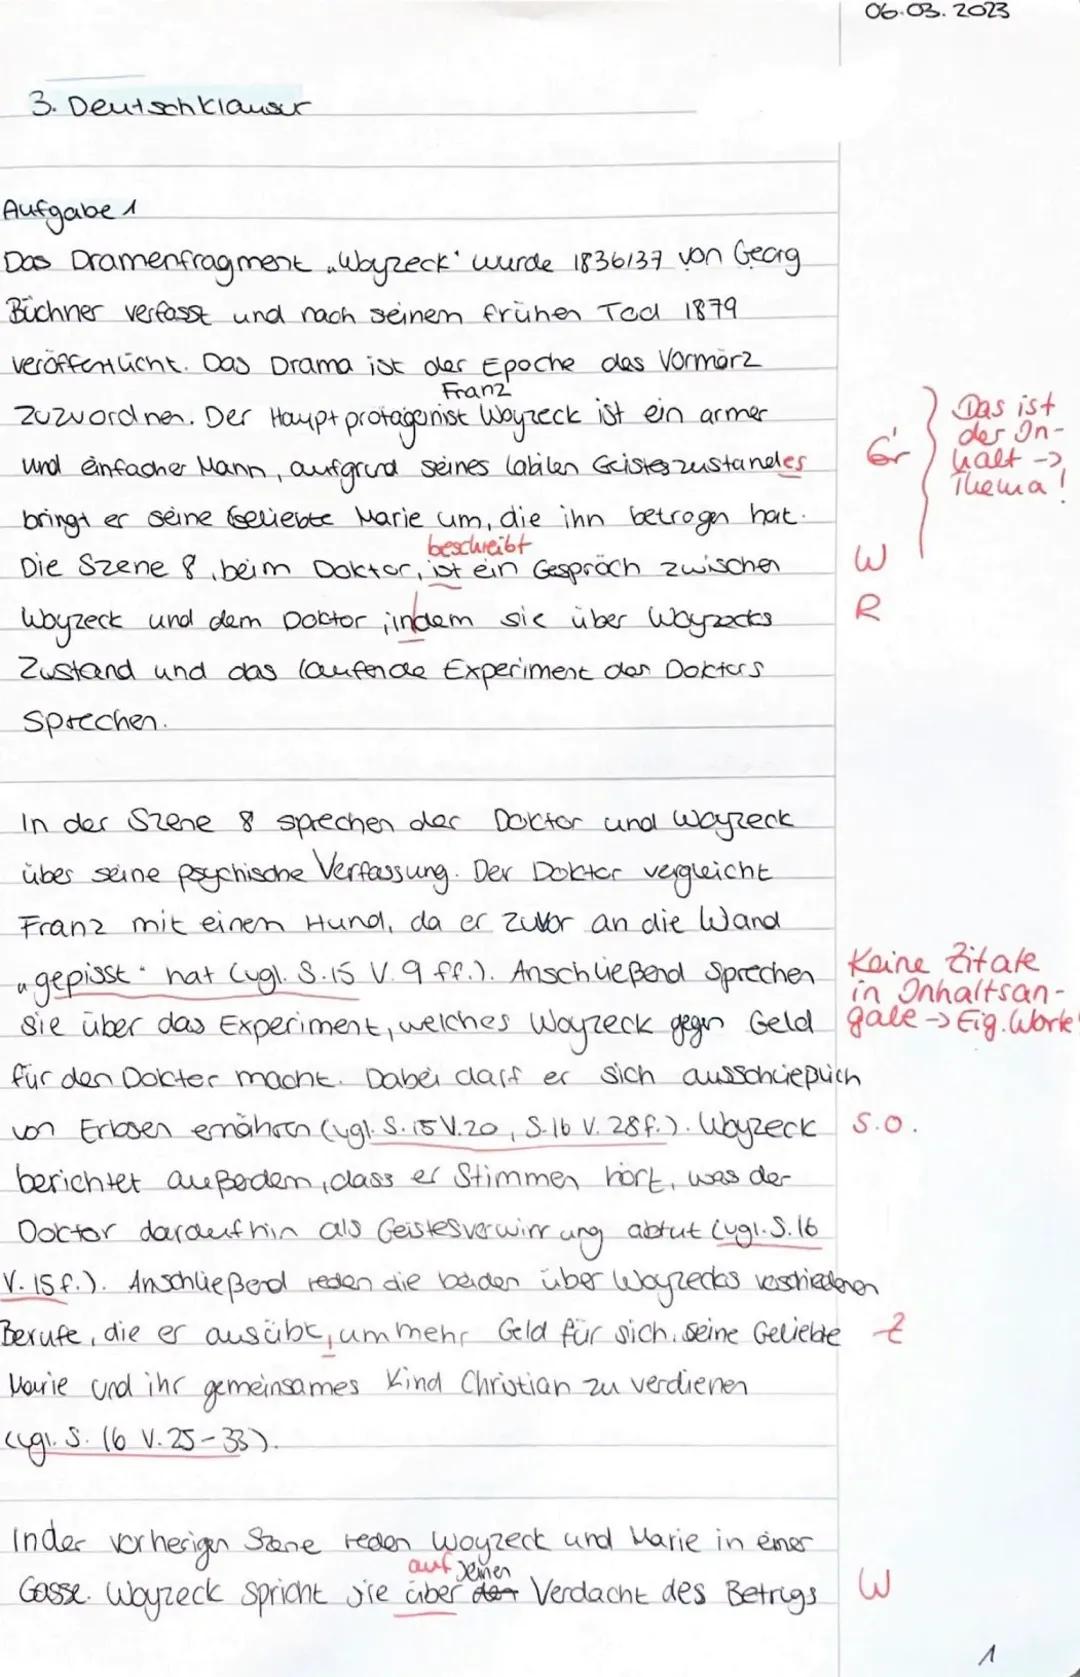 06.03.2023
3. Deutschklausur
Aufgabe 1
Das Dramenfragment „Woyzeck" wurde 1836/37 von Georg
Büchner verfasst und nach seinem frühen Tod 1879
veröffentlicht. Das Drama ist der Epoche des Vormärz
Franz
zuzuordnen. Der Hauptprotagonist Woyzeck ist ein armer
und einfacher Mann, aufgrund seines labilen Geisteszustandes
Gr
Das ist der In-halt -> Thema!
bringt er seine Geliebte Marie um, die ihn betrogen hat.
beschreibt
Die Szene 8, beim Doktor, ist ein Gespräch zwischen W
Woyzeck und dem Doktor, indem sie über Woyzecks R
Zustand und das laufende Experiment des Doktors
Sprechen.
In der Szene 8 sprechen der Doktor und Woyzeck
über seine psychische Verfassung. Der Doktor vergleicht
Franz mit einem Hund, da er zuvor an die Wand
„gepisst" hat (vgl. S.15 V.9 ff.). Anschließend sprechen Keine Zitate
sie über das Experiment, welches Woyzeck gegen Geld in Inhaltsan-
gabe -> Eig. Worte!
für den Doktor macht. Dabei darf er sich ausschließlich
von Erbsen ernähren (vgl. S.15 V.20, S.16 V.28f.). Woyzeck s.o.
berichtet außerdem, dass er Stimmen hört, was der
Doktor daraufhin als Geistesverwirrung abtut (vgl. S.16
V.15f.). Anschließend reden die beiden über Woyzecks verschiedenen
Berufe, die er ausübt, um mehr Geld für sich, seine Geliebte Z
Marie und ihr gemeinsames Kind Christian zu verdienen
(vgl. S. 16 V.25-33).
In der vorherigen Szene reden Woyzeck und Marie in einer
auf seinen
Gasse. Woyzeck spricht sie über den Verdacht des Betrugs W
1